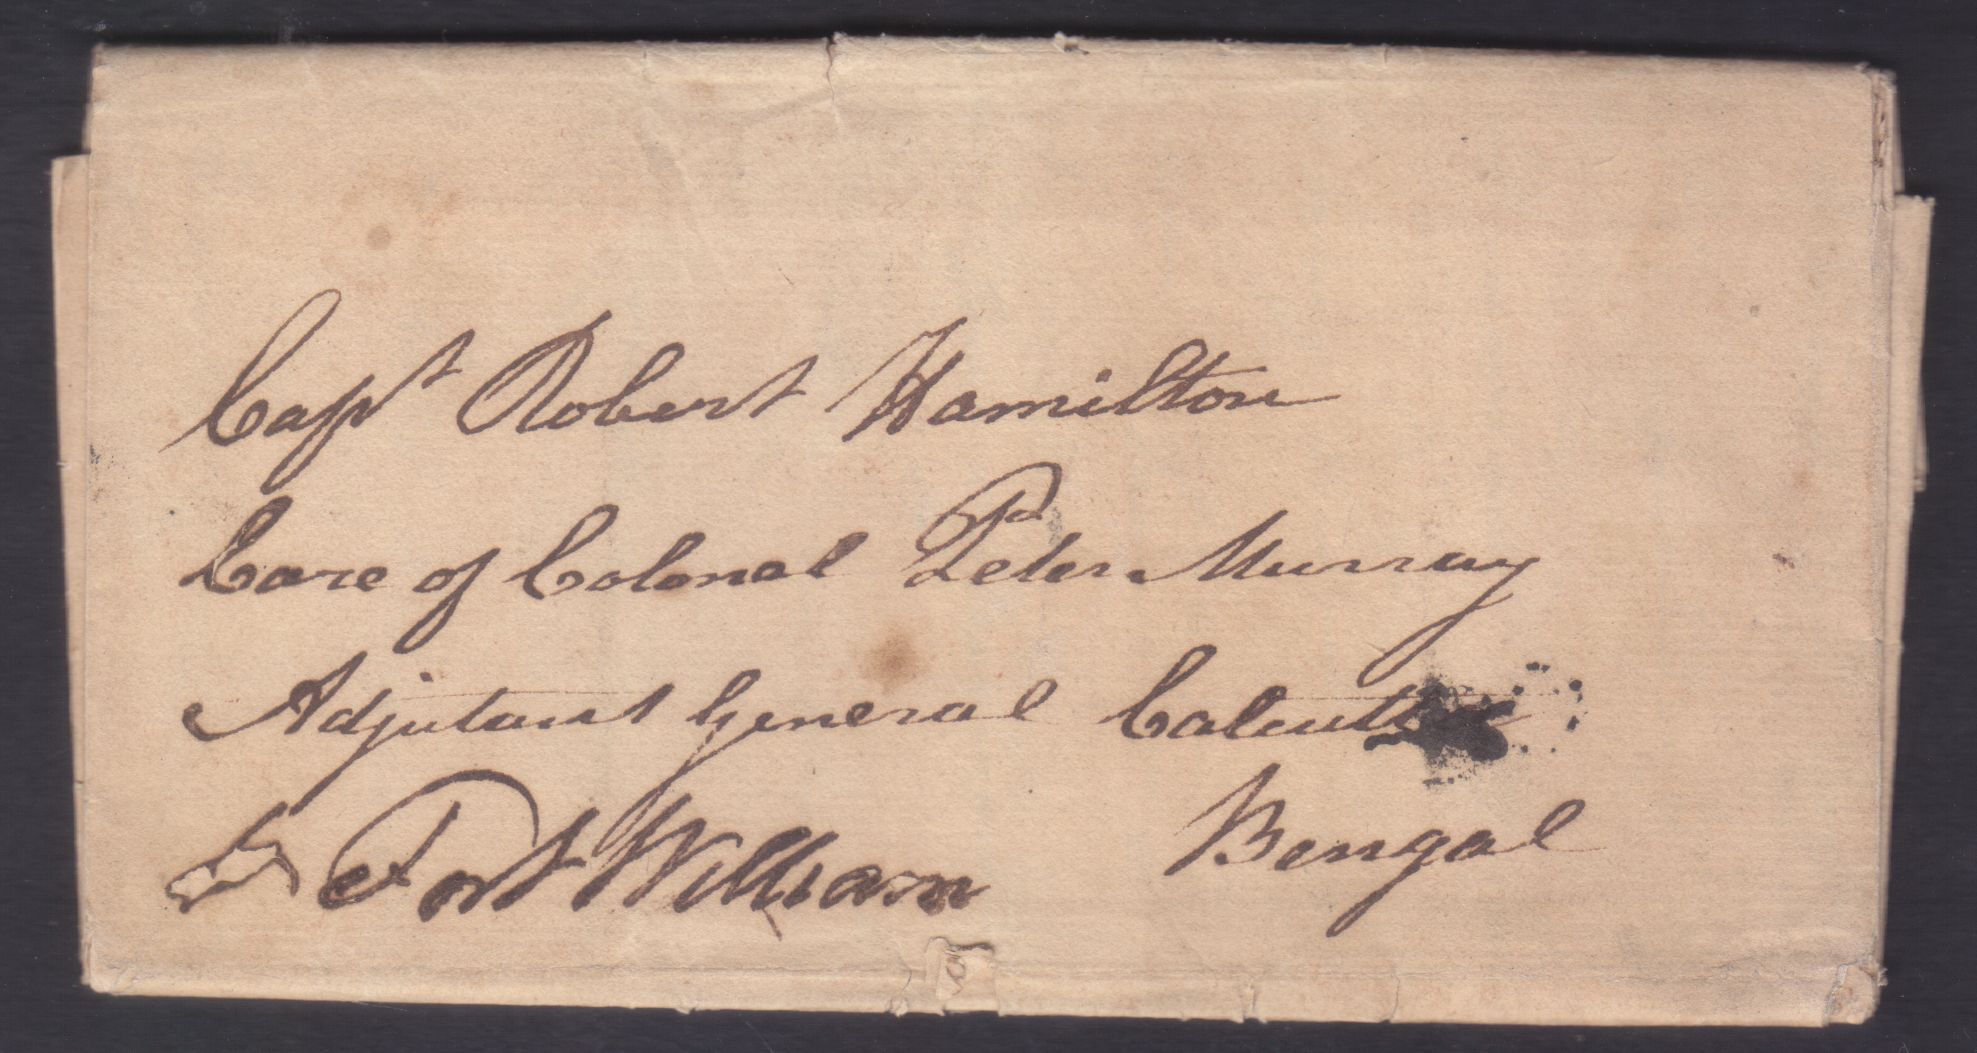 Capt Robert Hamilton
Care of Colonel Peter Murray
Adjutant General Calcutta
Bengal
Fort William